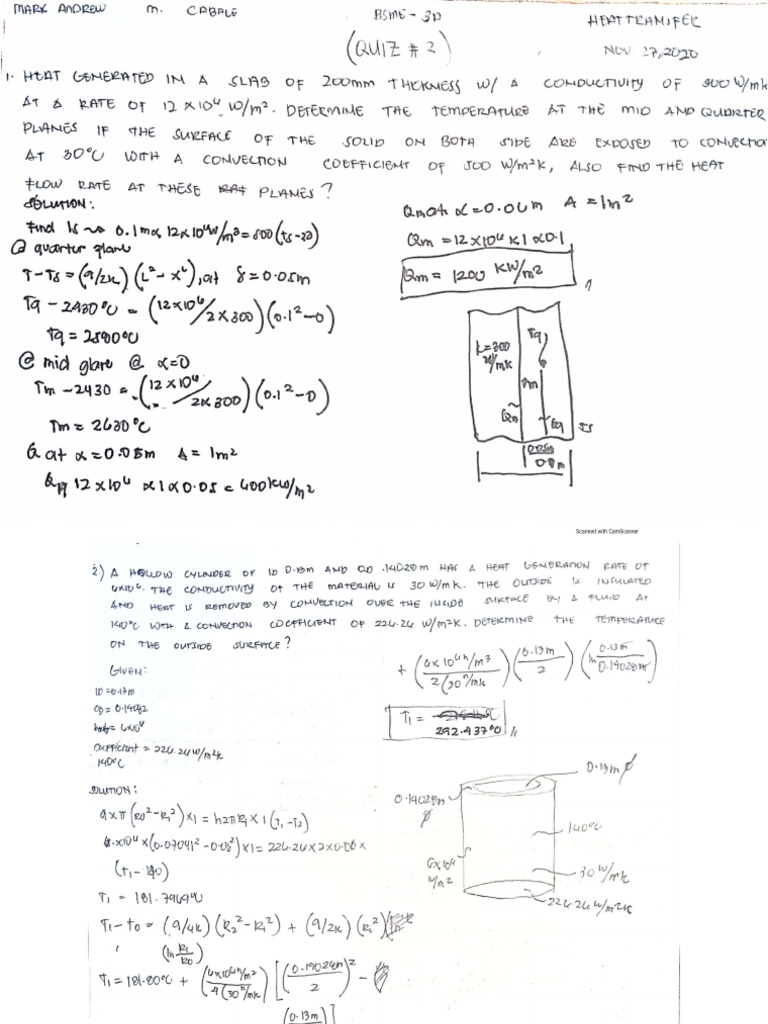 MARK ANDREW M. CABALE BSME - 3D HEAT TRANSFER
(QUIZ # 2) NOV. 27, 2020
1. HEAT GENERATED IN A SLAB OF 200mm THCKNESS W/ A CONDUCTIVITY OF 300 W/mk
AT A RATE OF 12 x 10⁶ W/m². DETERMINE THE TEMPERATURE AT THE MID AND QUARTER
PLANES IF THE SURFACE OF THE SOLID ON BOTH SIDE ARE EXPOSED TO CONVECTION
AT 30°C WITH A CONVECTION COEFFICIENT OF 500 W/m²K, ALSO FIND THE HEAT
FLOW RATE AT THESE PLANES?
SOLUTION:
Find Ts 0.1m x 12x10⁶W/m³ = 500 (Ts-30)
@ quarter plane
T-Ts = (q/2k)(L²-x²), at x = 0.05m
Tq - 2430°C = (12x10⁶/2x300)(0.1²-0)
Tq = 2580°C
@ mid plane @ x=0
Tm - 2430 = (12x10⁶/2x300)(0.1²-0)
Tm = 2630°C
Q at x = 0.05m A = 1m²
12x10⁶ x1x0.05 = 600KW/m²
Qm at x=0.0 m A = 1m²
Qm = 12x10⁶ x 1 x 0.1
Qm = 1200 KW/m²
k=300
W/mk
Tq
Tm
Qm
Qq
Ts
0.05m
0.1m
Scanned with CamScanner
2.) A HOLLOW CYLINDER OF ID 0.13m AND OD .14028m HAS A HEAT GENERATION RATE OF
6x10⁶. THE CONDUCTIVITY OF THE MATERIAL IS 30 W/mK. THE OUTSIDE IS INSULATED
AND HEAT IS REMOVED BY CONVECTION OVER THE INSIDE SURFACE BY A FLUID AT
140°C WITH A CONVECTION COEFFICIENT OF 224.24 W/m²K. DETERMINE THE TEMPERATURE
ON THE OUTSIDE SURFACE?
GIVEN:
ID = 0.13m
OD = 0.14082
= 6x10⁶
coefficient = 224.24 W/m²k
140°C
+ (6x10⁶ W/m³ / 2(30 W/mk)) (0.13m / 2) (ln 0.13m / 0.14028m)
T₁ =
292.937°C //
SOLUTION:
q x π (Ro² - Ri²) x 1 = h2πRi x 1 (T₁ - T₂)
6 x10⁶ x (0.07041² - 0.06²) x 1 = 224.24 x 2 x 0.06 x
(T₁ - 140)
T₁ = 181.7969°C
T₁ - To = (q/4k)(R₂² - R₁²) + (q/2k)(R₁²)
(ln R₁/Ro)
T₁ = 181.80°C + (6x10⁶ W/m² / 4(30 W/mk)) [(0.14028m / 2)² -
(0.13m)]
0.13m ∅
0.14028m
∅
140°C
6x10⁶
W/m²
30 W/mk
224.24 W/m²k